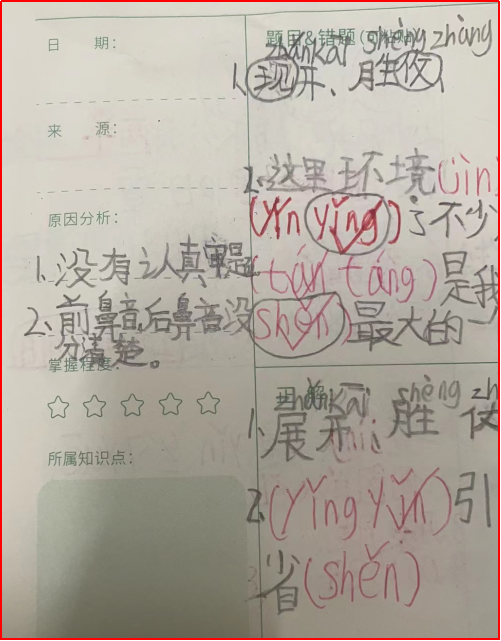 日 期：
来 源：
原因分析：
1、没有认真审题
2、前鼻音后鼻音没
分清楚。
掌握程度：
所属知识点：
题目&错题(可粘贴)
zhǎnkāi shèng zhàng
1、现开、胜仗
2、这里环境(jìn
(yǐn yǐng)了不少
(tán táng)是我
shěn)最大的
正 解
zhǎnkāi shèng zh
1、展开 胜 仗
2、(yǐng yǐn)引
省(shěn)